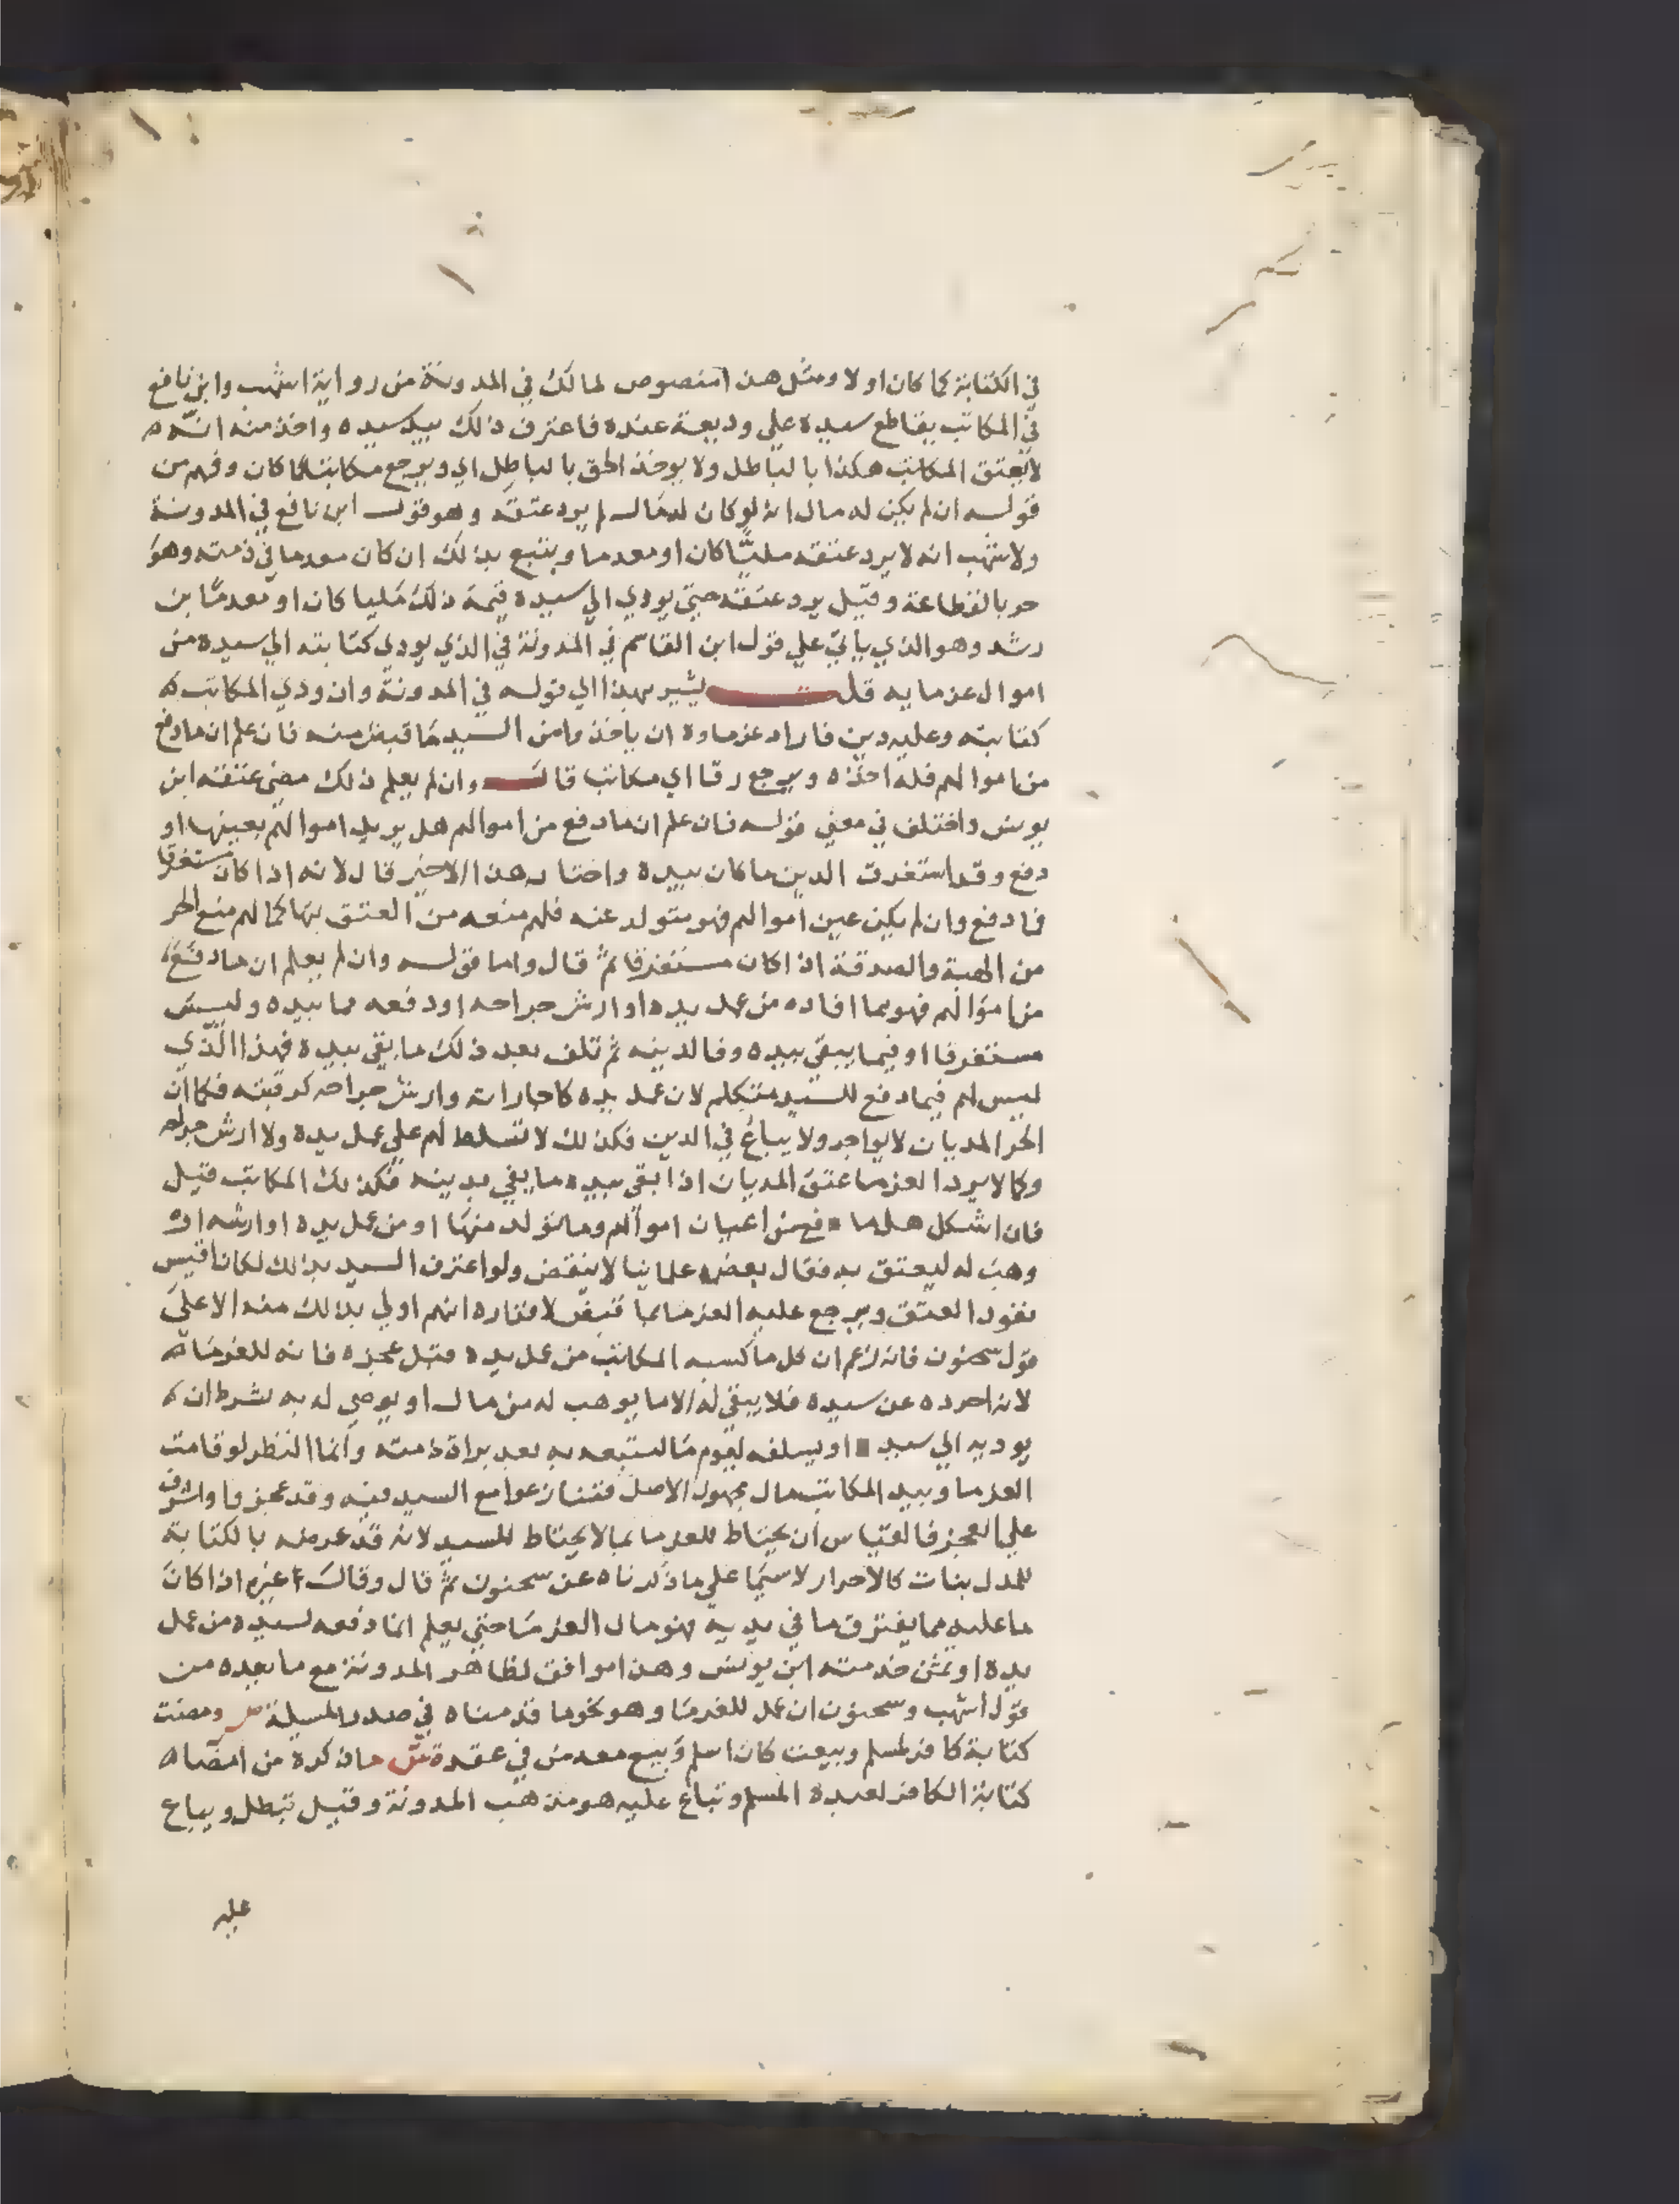 في الكتابة كما كان اولا ومثل هذا منصوص لمالك في المدونة من رواية اشهب وابن نافع
في المكاتب يقاطع سيده علي وديعة عنده فاعترف ذلك بيد سيده واخذ منه انه
لا يعتق المكاتب هكذا بالباطل ولا يوخذ الحق بالباطل اي ويرجع مكاتبا كما كان وفهم من
قوله ان لم يكن له مال انه لو كان له مال لم يرد عتقه وهو قول ابن نافع في المدونة
ولاشهب انه لا يرد عتقه مليًّا كان او معدما ويتبع بذلك ان كان معدما في ذمته وهو
حر بالقطاعة وقيل يرد عتقه حتي يودي الي سيده قيمة ذلك مليا كان او معدما بن
رشد وهو الذي ياتي علي قول ابن القاسم في المدونة في الذي يودي كتابته الي سيده من
اموال غرمايه قلت يشير بهذا الي قوله في المدونة وان ودي المكاتب
كتابته وعليه دين فاراد غرماوه ان ياخذوا من السيد ما قبض منه فان علم ان ما دفع
من اموالهم فله اخذه ويرجع رقا اي مكاتبا قال وان لم يعلم ذلك مضي عتقه ابن
يونس واختلف في معني قوله فان علم ان ما دفع من اموالهم هل يريد اموالهم بعينها او
دفع وقد استغرق الدين ما كان بيده واختار هذا الاخير قال لانه اذا كان مستغرقا
فما دفع وان لم يكن عين اموالهم فهو متولد عنه فلهم منعه من العتق بها كما لهم منع الحر
من الهبة والصدقة اذا كان مستغرقا ثم قال واما قوله وان لم يعلم ان ما دفع
من اموالهم فهو بما افاده من عمل يده او ارش جراحه او دفعه مما بيده وليس
مستغرقا او فيما يبقي بيده وفا لدينه ثم تلف بعد ذلك ما بقي بيده فهذا الذي
ليس لهم فيما دفع للسيد متكلم لان عمل يده كاجاراته وارش جراحه كرقبته فكما ان
الحر المديان لا يواجر ولا يباع في الدين فكذلك لا تسلط لهم علي عمل يده ولا ارش جراحه
وكما لا يرد الغرما عتق المديان اذا بقي بيده ما يفي بدينه فكذلك المكاتب قيل
فان اشكل هل ما دفع من اعيان اموالهم وما تولد منها او من عمل يده او ارشه او
وهب له ليعتق به فقال بعض علماينا لا ينقض ولو اعترف السيد بذلك لكان اقيس
نفود العتق ويرجع عليه الغرما بما قبض لاقراره انهم اولي بذلك منه الا علي
قول سحنون فانه زعم ان كل ما كسبه المكاتب من عمل يده قبل عجزه فانه للغرما
لانه احرزه عن سيده فلا يبقي له الا ما يوهب له من مال او يوصي له به بشرط ان
يوديه الي سيد او يسلفه ليوم ما ليتبعه به بعد براة ذمته وانما النظر لو قامت
الغرما وبيد المكاتب مال مجهول الاصل فتنازعوا مع السيد فيه وقد عجز فا واشرف
علي العجز فالقياس ان يحتاط للغرما بما لا يحتاط للسيد لانه قد عرضه بالكتابة
للمداينات كالاحرار لا سيما علي ما ذكرناه عن سحنون ثم قال وقال غيره اذا كان
ما عليه مما يغترق ما في يديه فهو مال الغرما حتي يعلم انما دفعه لسيده من عمل
يده او ثمن خدمته ابن يونس وهذا موافق لظاهر المدونة مع ما بعده من
قول اشهب وسحنون ان عمل للغرما وهو نحو ما قدمناه في صدر المسيلة ص ومضت
كتابة كافر لمسلم وبيعت كان اسلم وبيع معه من في عقده ش ما ذكره من امضا
كتابة الكافر لعبده المسلم وتباع عليه هو مذهب المدونة وقيل تبطل ويباع
عليه